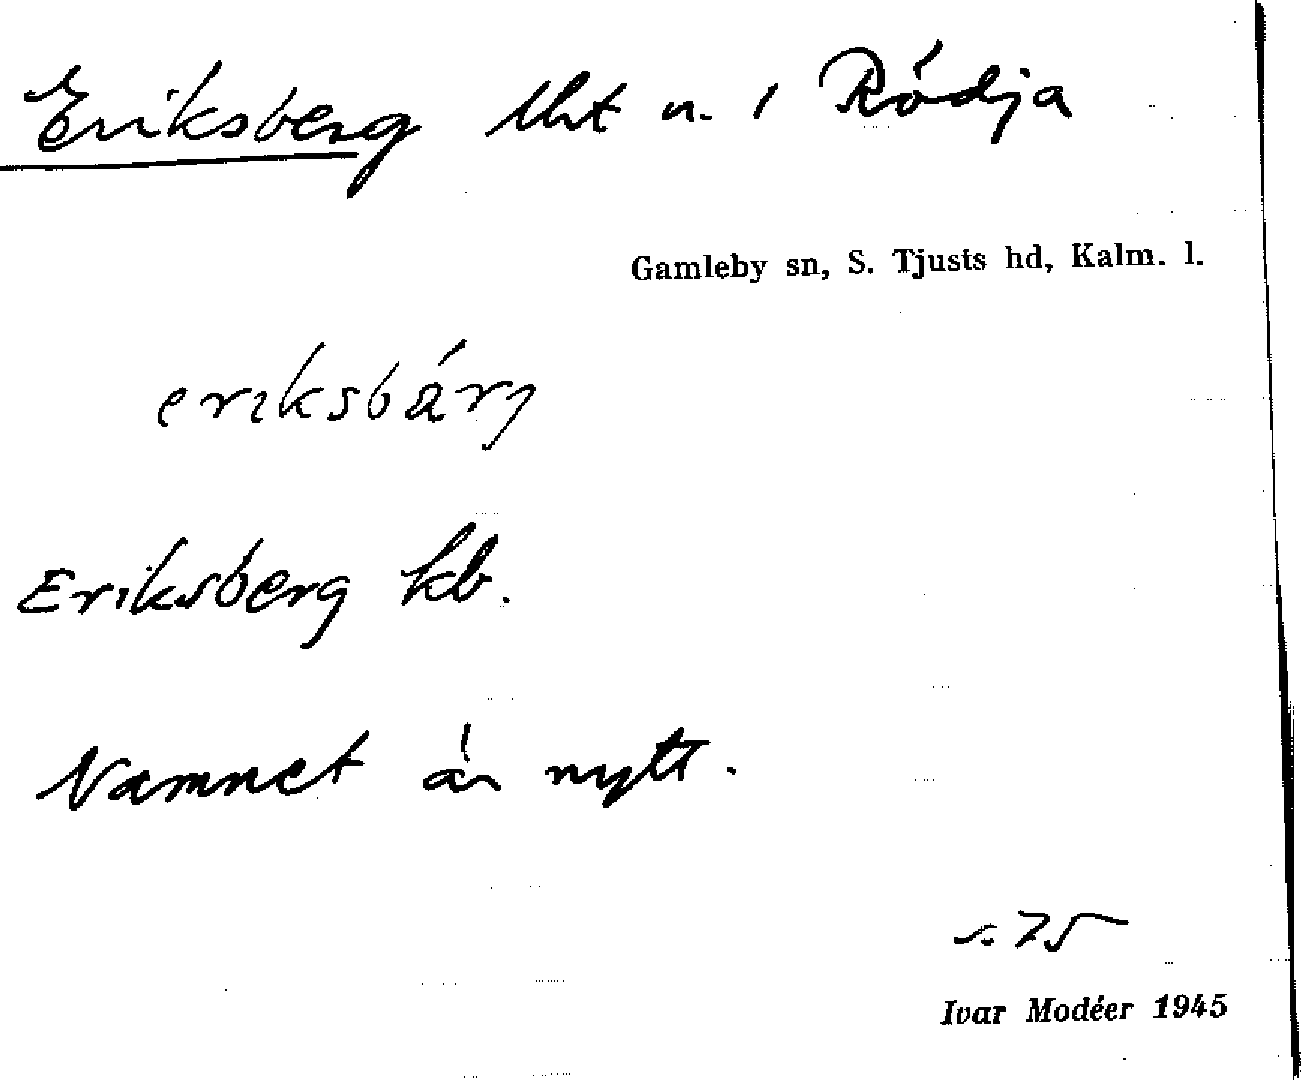 Eriksberg lht u. / Rödja
Gamleby sn, S. Tjusts hd, Kalm. l.
eriksbärj
Eriksberg kb.
Namnet är nytt.
s. 75
Ivar Modéer 1945